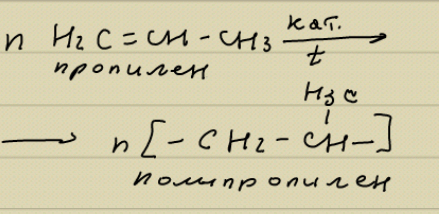 n H₂C=CH-CH₃ кат. t →
пропилен
H₃C
→ n[-CH₂-CH-]
полипропилен